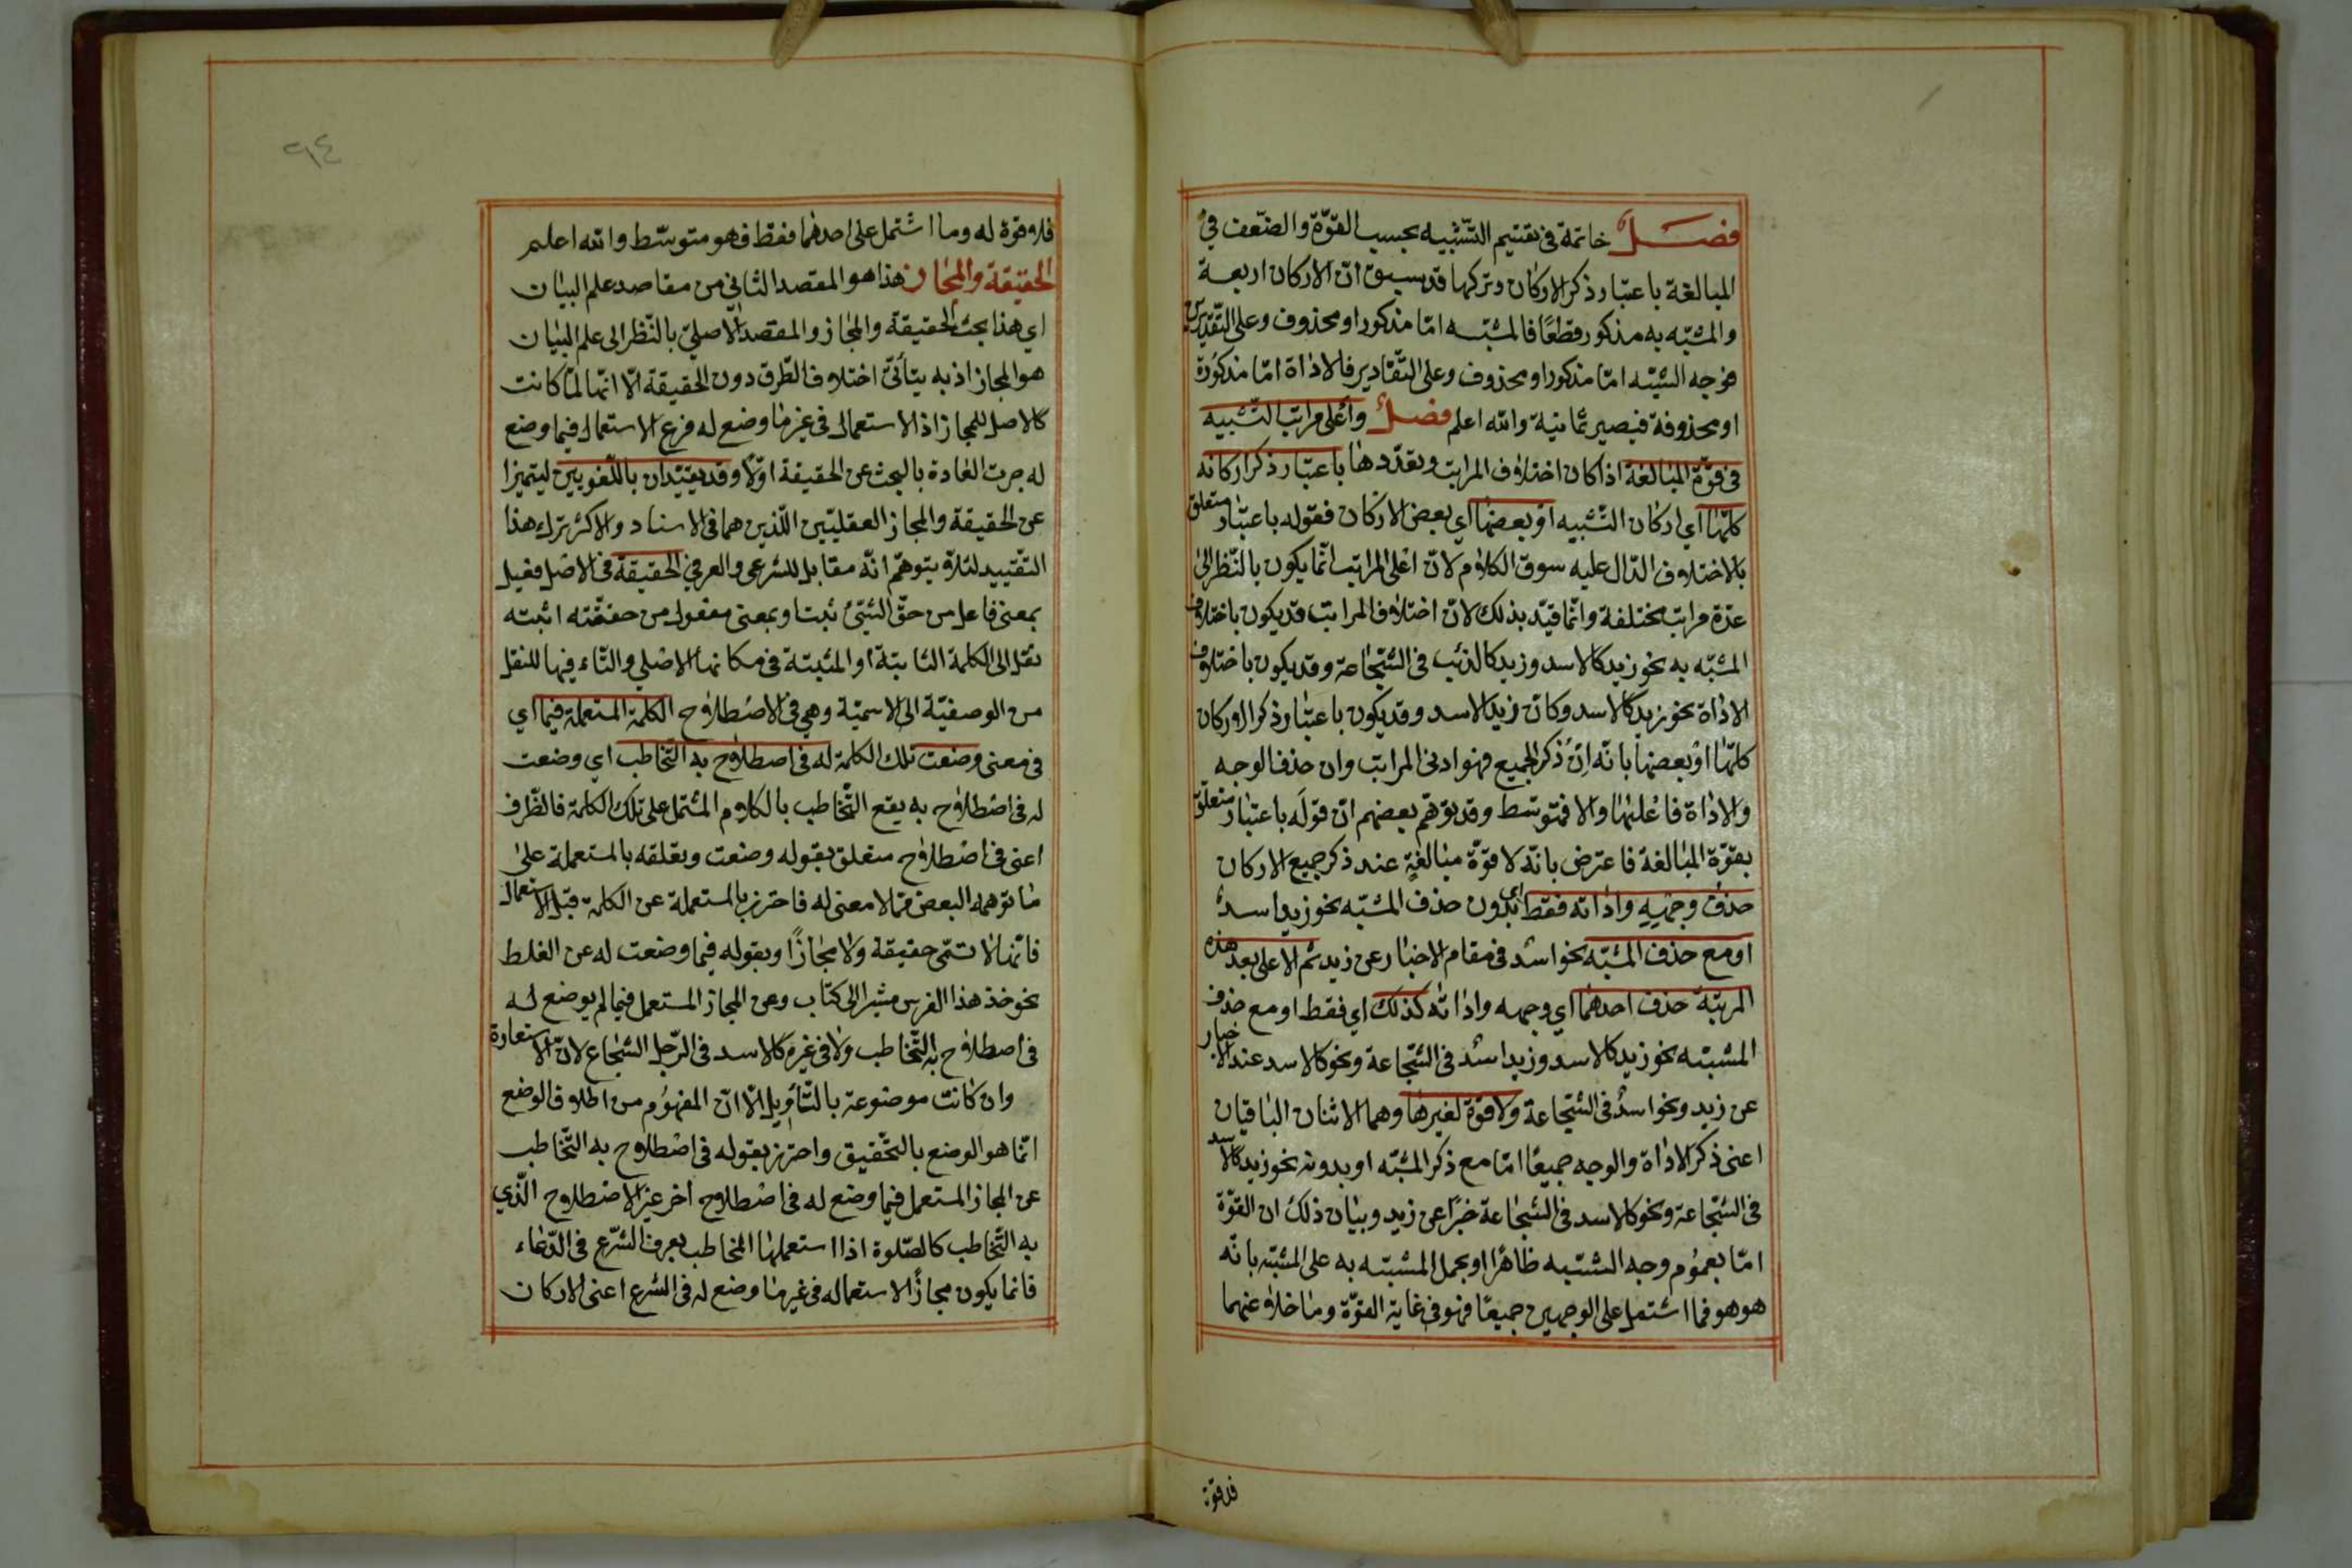 فصل خاتمة في تقسيم التشبيه بحسب القوّة والضّعف في
المبالغة باعتبار ذكر الاركان وتركها قد سبق انّ الاركان اربعة
والمشبّه به مذكور قطعًا فالمشبّه امّا مذكور او محذوف وعلى التّقديرين
فوجه الشبه امّا مذكور او محذوف وعلى التّقادير فالاداة امّا مذكورة
او محذوفة فيصير ثمانية والله اعلم فصل وأعلى مراتب التّشبيه
في قوّة المبالغة اذا كان اختلاف المراتب وتعدّدها باعتبار ذكر اركانه
كلّها اي اركان التّشبيه او بعضها اي بعض الاركان فقوله باعتبار متعلق
بالاختلاف الدّال عليه سوق الكلام لانّ اعلى المراتب انّما يكون بالنّظر الى
عدّة مراتب مختلفة وانّما قيّد بذلك لانّ اختلاف المراتب قد يكون باختلاف
المشبّه به نحو زيد كالاسد وزيد كالذئب في الشّجاعة وقد يكون باختلاف
الاداة نحو زيد كالاسد وكانّ زيدا لاسد وقد يكون باعتبار ذكر الاركان
كلّها او بعضها بانّه ان ذكر الجميع فهو ادنى المراتب وان حذف الوجه
والاداة فاعليها والا فمتوسّط وقد توهّم بعضهم انّ قوله باعتبار متعلّق
بقوّة المبالغة فاعترض بانّه لا قوّة مبالغة عند ذكر جميع الاركان
حذف وجهه واداته فقط اي بدون حذف المشبّه نحو زيد اسد
او مع حذف المشبّه نحو اسد في مقام الاخبار عن زيد ثم الاعلى بعد هذه
المرتبة حذف احدهما اي وجهه واداته كذلك اي فقط او مع حذف
المشبّه نحو زيد كالاسد وزيد اسد في الشّجاعة ونحو كالاسد عند الاخبار
عن زيد ونحو اسد في الشّجاعة ولا قوّة لغيرها وهما الاثنان الباقيان
اعنى ذكر الاداة والوجه جميعًا امّا مع ذكر المشبّه او بدونه نحو زيد كالاسد
في الشّجاعة ونحو كالاسد في الشّجاعة خبرًا عن زيد وبيان ذلك ان القوّة
امّا بعموم وجه الشبه ظاهرًا او بحمل المشبّه به على المشبّه بانّه
هو هو فما اشتمل على الوجهين جميعًا فهو في غاية القوّة وما خلا عنهما
فلا قوة
٩٤
فلا قوة له وما اشتمل على احدهما فقط فهو متوسّط والله اعلم
الحقيقة والمجاز هذا هو المقصد الثاني من مقاصد علم البيان
اي هذا بحث الحقيقة والمجاز والمقصد الاصلي بالنّظر الى علم البيان
هو المجاز اذ به يتأتّى اختلاف الطّرق دون الحقيقة الّا انّها لمّا كانت
كالاصل للمجاز اذ الاستعمال في غير ما وضع له فرع الاستعمال فيما وضع
له جرت العادة بالبحث عن الحقيقة اوّلا وقد يقيّدان باللّغويين ليتميزا
عن الحقيقة والمجاز العقليّين اللّذين هما في الاسناد والاكثر ترك هذا
التّقييد لئلا يتوهّم انّه مقابل للشرعي والعرفي الحقيقة في الاصل فعيل
بمعنى فاعل من حقّ الشّيء ثبت او بمعنى مفعول من حققته اثبته
نقل الى الكلمة الثابتة او المثبتة في مكانها الاصلي والتّاء فيها للنقل
من الوصفيّة الى الاسميّة وهي في الاصطلاح الكلمة المستعملة فيما اي
في معنى وضعت تلك الكلمة له في اصطلاح به التّخاطب اي وضعت
له في اصطلاح به يقع التّخاطب بالكلام المشتمل على تلك الكلمة فالظّرف
اعني في اصطلاح متعلق بقوله وضعت وتعلقه بالمستعملة على
ما توهمه البعض ممّا لا معنى له فاحترز بالمستعملة عن الكلمة قبل الاستعمال
فانّها لا تسمّى حقيقة ولا مجازًا وبقوله فيما وضعت له عن الغلط
نحو خذ هذا الفرس مشيرا الى كتاب وعن المجاز المستعمل فيما لم يوضع له
في اصطلاح به التّخاطب ولا في غيره كالاسد في الرّجل الشّجاع لانّ الاستعارة
وان كانت موضوعة بالتّأويل الّا انّ المفهوم من اطلاق الوضع
انّما هو الوضع بالتّحقيق واحترز بقوله في اصطلاح به التّخاطب
عن المجاز المستعمل فيما وضع له في اصطلاح اخر غير الاصطلاح الّذي
به التّخاطب كالصّلوة اذا استعملها المخاطب بعرف الشّرع في الدّعاء
فانما يكون مجازًا لاستعماله في غير ما وضع له في الشّرع اعنى الاركان